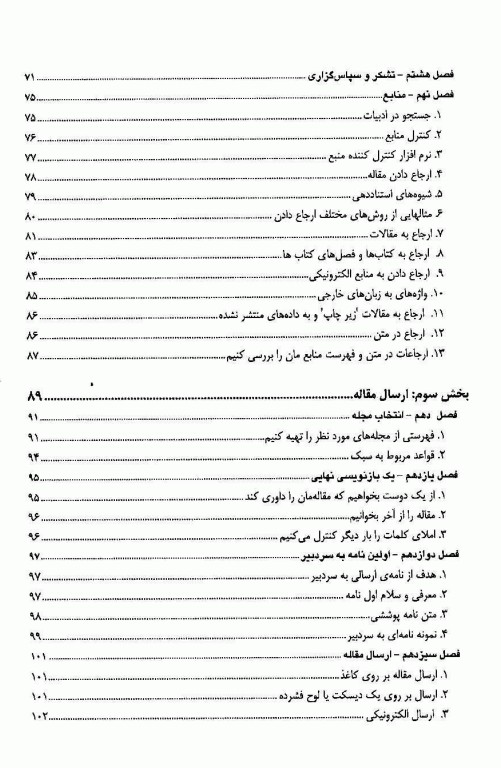 فصل هشتم - تشکر و سپاس‌گزاری ........ ۷۱
فصل نهم - منابع ........ ۷۵
۱. جستجو در ادبیات ........ ۷۵
۲. کنترل منابع ........ ۷۶
۳. نرم افزار کنترل کننده منبع ........ ۷۷
۴. ارجاع دادن مقاله ........ ۷۸
۵. شیوه‌های استناددهی ........ ۷۹
۶. مثالهایی از روش‌های مختلف ارجاع دادن ........ ۸۰
۷. ارجاع به مقالات ........ ۸۱
۸. ارجاع به کتاب‌ها و فصل‌های کتاب ها ........ ۸۳
۹. ارجاع دادن به منابع الکترونیکی ........ ۸۴
۱۰. واژه‌های به زبان‌های خارجی ........ ۸۵
۱۱. ارجاع به مقالات 'زیر چاپ' و به داده‌های منتشر نشده ........ ۸۶
۱۲. ارجاع در متن ........ ۸۶
۱۳. ارجاعات در متن و فهرست منابع مان را بررسی کنیم ........ ۸۷
بخش سوم: ارسال مقاله ........ ۸۹
فصل دهم - انتخاب مجله ........ ۹۱
۱. فهرستی از مجله‌های مورد نظر را تهیه کنیم ........ ۹۱
۲. قواعد مربوط به سبک ........ ۹۴
فصل یازدهم - یک بازنویسی نهایی ........ ۹۵
۱. از یک دوست بخواهیم که مقاله‌مان را داوری کند ........ ۹۵
۲. مقاله را از آخر بخوانیم ........ ۹۶
۳. املای کلمات را بار دیگر کنترل می‌کنیم ........ ۹۶
فصل دوازدهم - اولین نامه به سردبیر ........ ۹۷
۱. هدف از نامه‌ی ارسالی به سردبیر ........ ۹۷
۲. معرفی و سلام اول نامه ........ ۹۷
۳. متن نامه پوششی ........ ۹۸
۴. نمونه نامه‌ای به سردبیر ........ ۹۹
فصل سیزدهم - ارسال مقاله ........ ۱۰۱
۱. ارسال مقاله بر روی کاغذ ........ ۱۰۱
۲. ارسال بر روی یک دیسکت یا لوح فشرده ........ ۱۰۱
۳. ارسال الکترونیکی ........ ۱۰۲